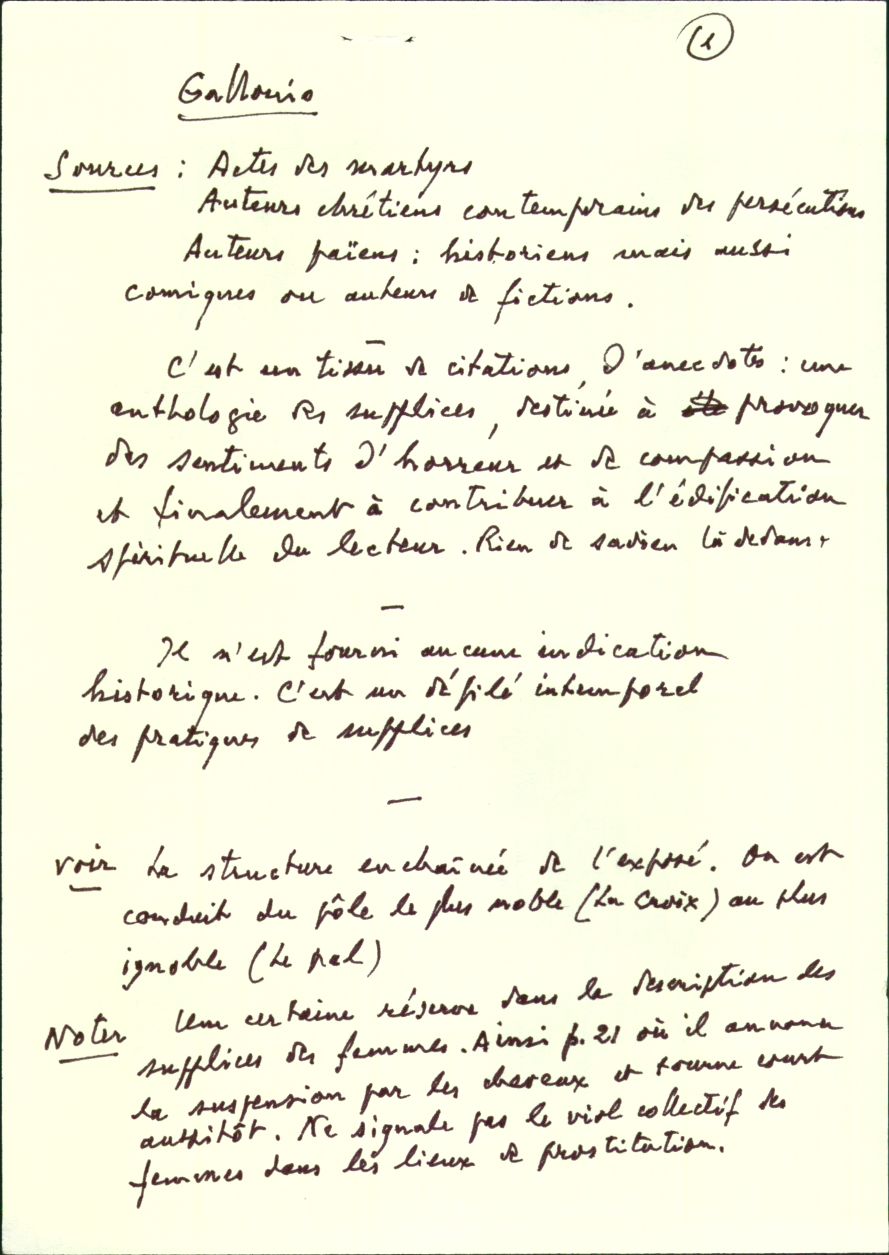 (1)
Gallonio
Sources : Actes des martyrs
Auteurs chrétiens contemporains des persécutions
Auteurs païens : historiens mais aussi
comiques ou auteurs de fictions.
—
C'est un tissu de citations, d'anecdotes : une
anthologie des supplices, destinée à provoquer
des sentiments d'horreur et de compassion
et finalement à contribuer à l'édification
spirituelle du lecteur. Rien de sadien là dedans.
—
Il n'est fourni aucune indication
historique. C'est un défilé intemporel
des pratiques de supplices
—
Voir La structure enchaînée de l'exposé. On est
conduit du pôle le plus noble (La Croix) au plus
ignoble (Le pal)
Noter Une certaine réserve dans la description des
supplices des femmes. Ainsi p. 21 où il annonce
la suspension par les cheveux et tourne court
aussitôt. Ne signale pas le viol collectif des
femmes dans les lieux de prostitution.